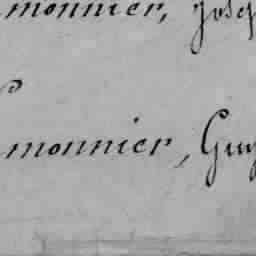 monnier, Jos
monnier, Guy